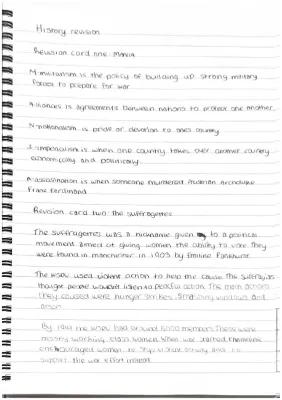 History revision
Revision card one: Mania
M-militarism is the policy of building up strong military
forces to prepare for war
A-lliances is agreements between nations to protect one another
N-nationalism is pride or devotion to ones country
I-imperialism is when one country takes over another country
economically and politically.
A-assassination is when someone murdered Austrian Archduke
Franz Ferdinand
Revision card two: the suffragettes
The suffragettes was a nickname given to a political
movement aimed at giving women the ability to vote. They
were found in manchester in 1903 by Emiline Pankhurst.
The WSPU used violent action to help the cause. The suffragettes
thought people wouldn't listen to peaceful action. The main actions
they caused were hunger strikes, smashing windows and
arson
By 1914 the WSPU had around 5000 members. These were
mostly working class women. When war started, the
encouraged women to stop violent activity and to
support the war effort instead.